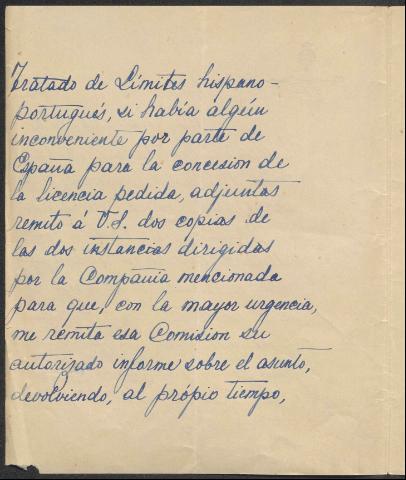 Tratado de Límites hispano-
portugués, si había algún
inconveniente por parte de
España para la concesion de
la licencia pedida, adjuntas
remito á V.S. dos copias de
las dos instancias dirigidas
por la Compañia mencionada
para que, con la mayor urgencia,
me remita esa Comision su
autorizado informe sobre el asunto,
devolviendo, al própio tiempo,